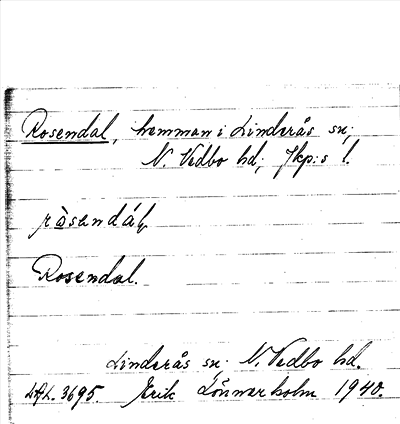 Rosendal, hemman i Linderås sn;
N. Vedbo hd; Jkp:s l.
ròsendál,
Rosendal.
Linderås sn. N. Vedbo hd.
LAL. 3695. Erik Lönnerholm 1940.